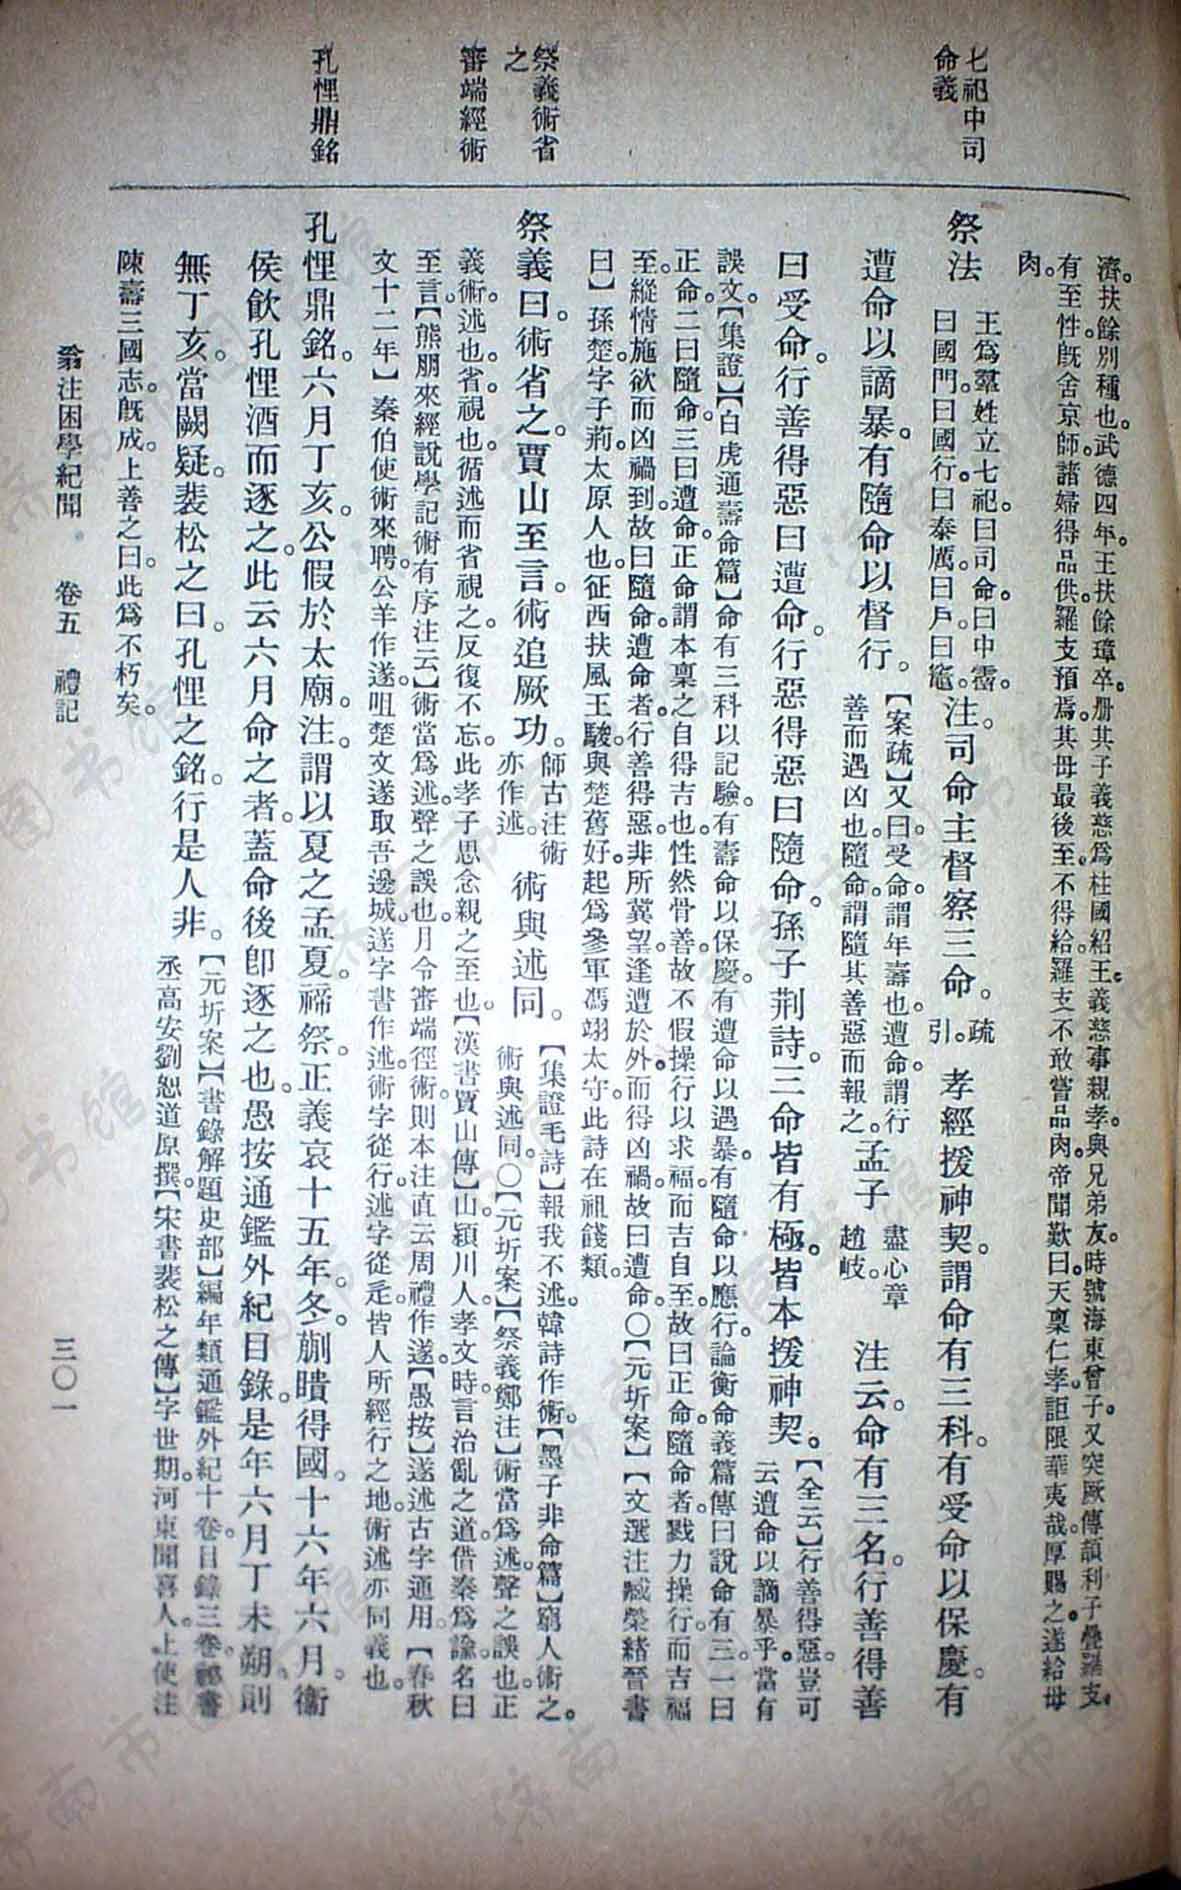 七祀中司
命義
祭義術省
之
審端經術
孔悝鼎銘
濟。扶餘別種也。武德四年。王扶餘璋卒。册其子義慈爲柱國紹王。義慈事親孝。與兄弟友。時號海東曾子。又突厥傳。頡利子疊羅支。
有至性。旣舍京師。諸婦得品供。羅支預焉。其母最後至。不得給。羅支不敢嘗品肉。帝聞歎曰。天稟仁孝。詎限華夷哉。厚賜之。遂給母
肉。
祭法
王爲羣姓立七祀。曰司命。曰中霤。
曰國門。曰國行。曰泰厲。曰戶。曰竈。
注。司命主督察三命。
疏
引。
孝經援神契。謂命有三科。有受命以保慶。有
遭命以謫暴。有隨命以督行。
【案疏】又曰。受命。謂年壽也。遭命。謂行
善而遇凶也。隨命。謂隨其善惡而報之。
孟子
盡心章
趙岐。
注云。命有三名。行善得善
曰受命。行善得惡曰遭命。行惡得惡曰隨命。孫子荆詩。三命皆有極。皆本援神契。
【全云】行善得惡。豈可
云遭命以謫暴乎。當有
誤文。【集證】【白虎通壽命篇】命有三科以記驗。有壽命以保慶。有遭命以遇暴。有隨命以應行。論衡命義篇傳曰。說命有三。一曰
正命。二曰隨命。三曰遭命。正命謂本稟之自得吉也。性然骨善。故不假操行以求福。而吉自至。故曰正命。隨命者。戮力操行。而吉福
至。縱情施欲而凶禍到。故曰隨命。遭命者。行善得惡。非所冀望。逢遭於外。而得凶禍。故曰遭命。〇【元圻案】【文選注臧榮緒晉書
曰】孫楚。字子荊。太原人也。征西扶風王駿。與楚舊好。起爲參軍。馮翊太守。此詩在祖餞類。
祭義曰。術省之。賈山至言。術追厥功。
師古注術
亦作述。
術與述同。
【集證毛詩】報我不述。韓詩作術。【墨子非命篇】窮人術之。
術與述同。〇【元圻案】【祭義鄭注】術當爲述。聲之誤也。正
義術。述也。省。視也。循述而省視之。反復不忘。此孝子思念親之至也。【漢書賈山傳】山。潁川人。孝文時。言治亂之道。借秦爲諭。名曰
至言。【熊朋來經說學記術有序注云】術當爲述。聲之誤也。月令審端徑術。則本注直云周禮作遂。【愚按】遂述古字通用。【春秋
文十二年】秦伯使術來聘。公羊作遂。咀楚文遂取吾邊城。遂字書作述。術字從行。述字從辵。皆人所經行之地。術述亦同義也。
孔悝鼎銘。六月丁亥。公假於太廟。注。謂以夏之孟夏禘祭。正義哀十五年。冬。蒯聵得國。十六年六月。衞
侯飮孔悝酒而逐之。此云六月命之者。蓋命後卽逐之也。愚按通鑑外紀目錄。是年六月丁未朔。則
無丁亥。當闕疑。裴松之曰。孔悝之銘。行是人非。
【元圻案】【書錄解題史部】編年類通鑑外紀十卷。目錄三卷。祕書
丞高安劉恕道原撰。【宋書裴松之傳】字世期。河東聞喜人。上使注
陳壽三國志。旣成。上善之曰。此爲不朽矣。
翁注困學紀聞 卷五 禮記
三〇一